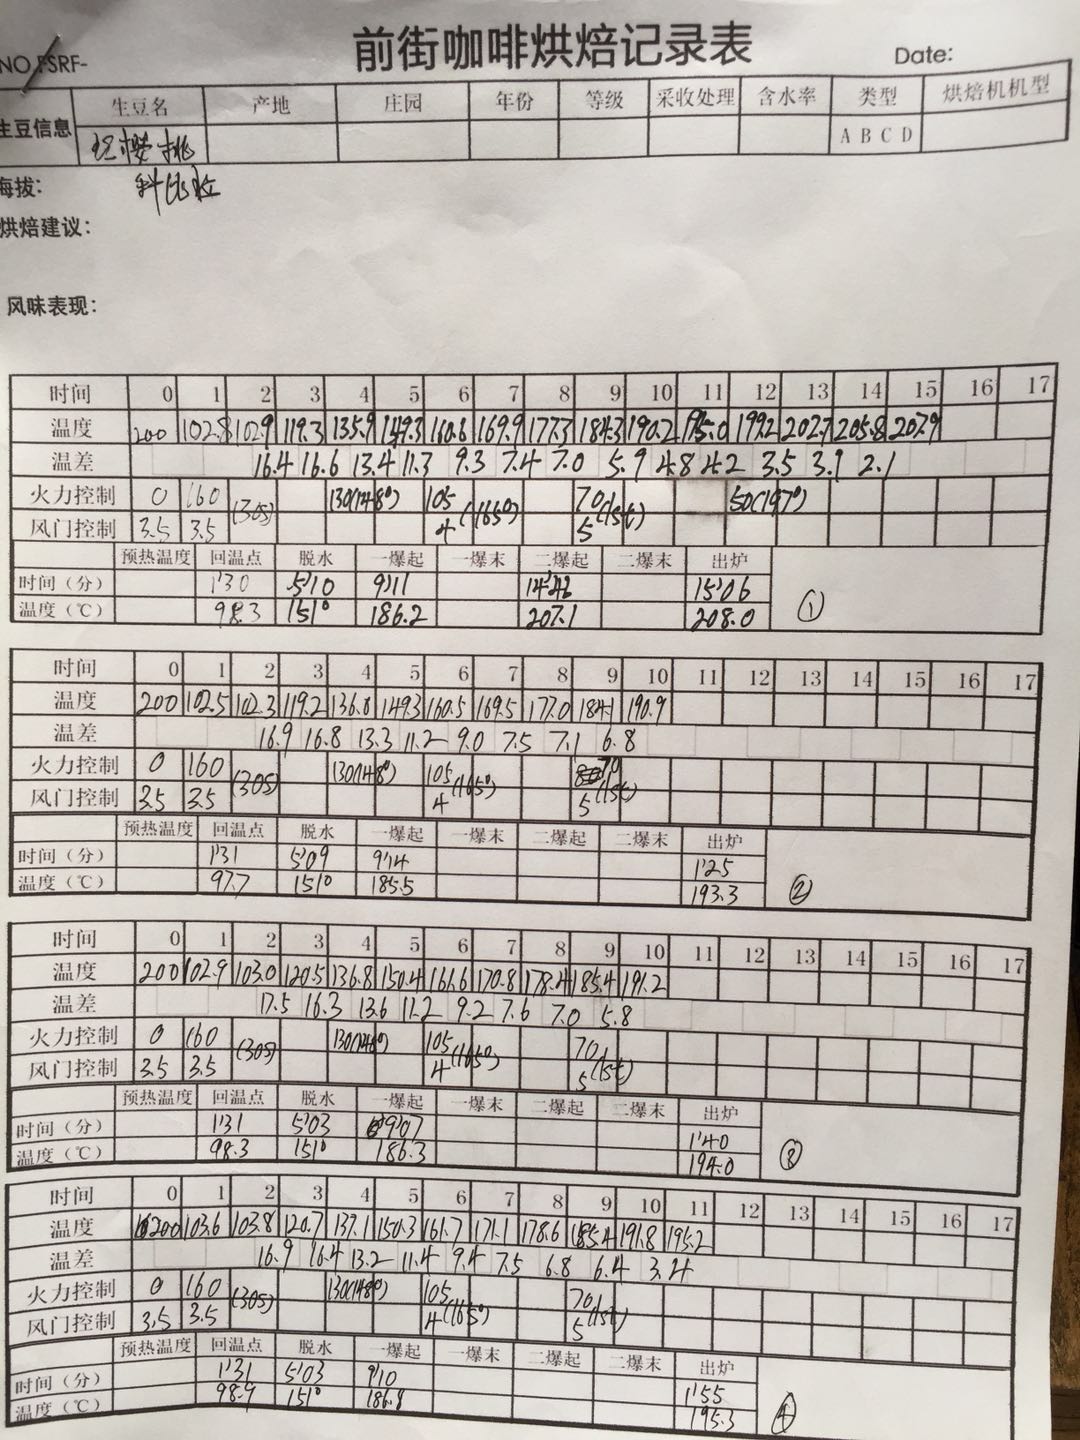 前街咖啡烘焙记录表
NO.FSRF- Date:
生豆信息 生豆名 产地 庄园 年份 等级 采收处理 含水率 类型 烘焙机机型
红樱桃 A B C D
海拔:
烘焙建议:
风味表现:
时间 0 1 2 3 4 5 6 7 8 9 10 11 12 13 14 15 16 17
温度 200 102.8 102.9 119.3 135.9 149.3 160.6 169.9 177.3 184.3 190.2 195.0 199.2 202.7 205.8 207.9
温差 16.4 16.6 13.4 11.3 9.3 7.4 7.0 5.9 4.8 4.2 3.5 3.1 2.1
火力控制 0 160 (30S) 130(148°) 105 (165°) 70 (1st) 50(197°)
风门控制 3.5 3.5 4 5
预热温度 回温点 脱水 一爆起 一爆末 二爆起 二爆末 出炉
时间(分) 1'30 5'10 9'11 14'42 15'06
温度(℃) 98.3 151° 186.2 207.1 208.0 ①
时间 0 1 2 3 4 5 6 7 8 9 10 11 12 13 14 15 16 17
温度 200 102.5 102.3 119.2 136.0 149.3 160.5 169.5 177.0 184.1 190.9
温差 16.9 16.8 13.3 11.2 9.0 7.5 7.1 6.8
火力控制 0 160 (30S) 130(148°) 105 (165°) 70 (1st)
风门控制 3.5 3.5 4 5
预热温度 回温点 脱水 一爆起 一爆末 二爆起 二爆末 出炉
时间(分) 1'31 5'09 9'14 1'25
温度(℃) 97.7 151° 185.5 193.3 ②
时间 0 1 2 3 4 5 6 7 8 9 10 11 12 13 14 15 16 17
温度 200 102.9 103.0 120.5 136.8 150.4 161.6 170.8 178.4 185.4 191.2
温差 17.5 16.3 13.6 11.2 9.2 7.6 7.0 5.8
火力控制 0 160 (30S) 130(148°) 105 (165°) 70 (1st)
风门控制 3.5 3.5 4 5
预热温度 回温点 脱水 一爆起 一爆末 二爆起 二爆末 出炉
时间(分) 1'31 5'03 9'07 1'40
温度(℃) 98.3 151° 186.3 194.0 ③
时间 0 1 2 3 4 5 6 7 8 9 10 11 12 13 14 15 16 17
温度 200 103.6 103.8 120.7 137.1 150.3 161.7 171.1 178.6 185.4 191.8 195.2
温差 16.9 16.4 13.2 11.4 9.4 7.5 6.8 6.4 3.4
火力控制 0 160 (30S) 130(148°) 105 (165°) 70 (1st)
风门控制 3.5 3.5 4 5
预热温度 回温点 脱水 一爆起 一爆末 二爆起 二爆末 出炉
时间(分) 1'31 5'03 9'10 1'55
温度(℃) 98.9 151° 186.8 195.3 ④